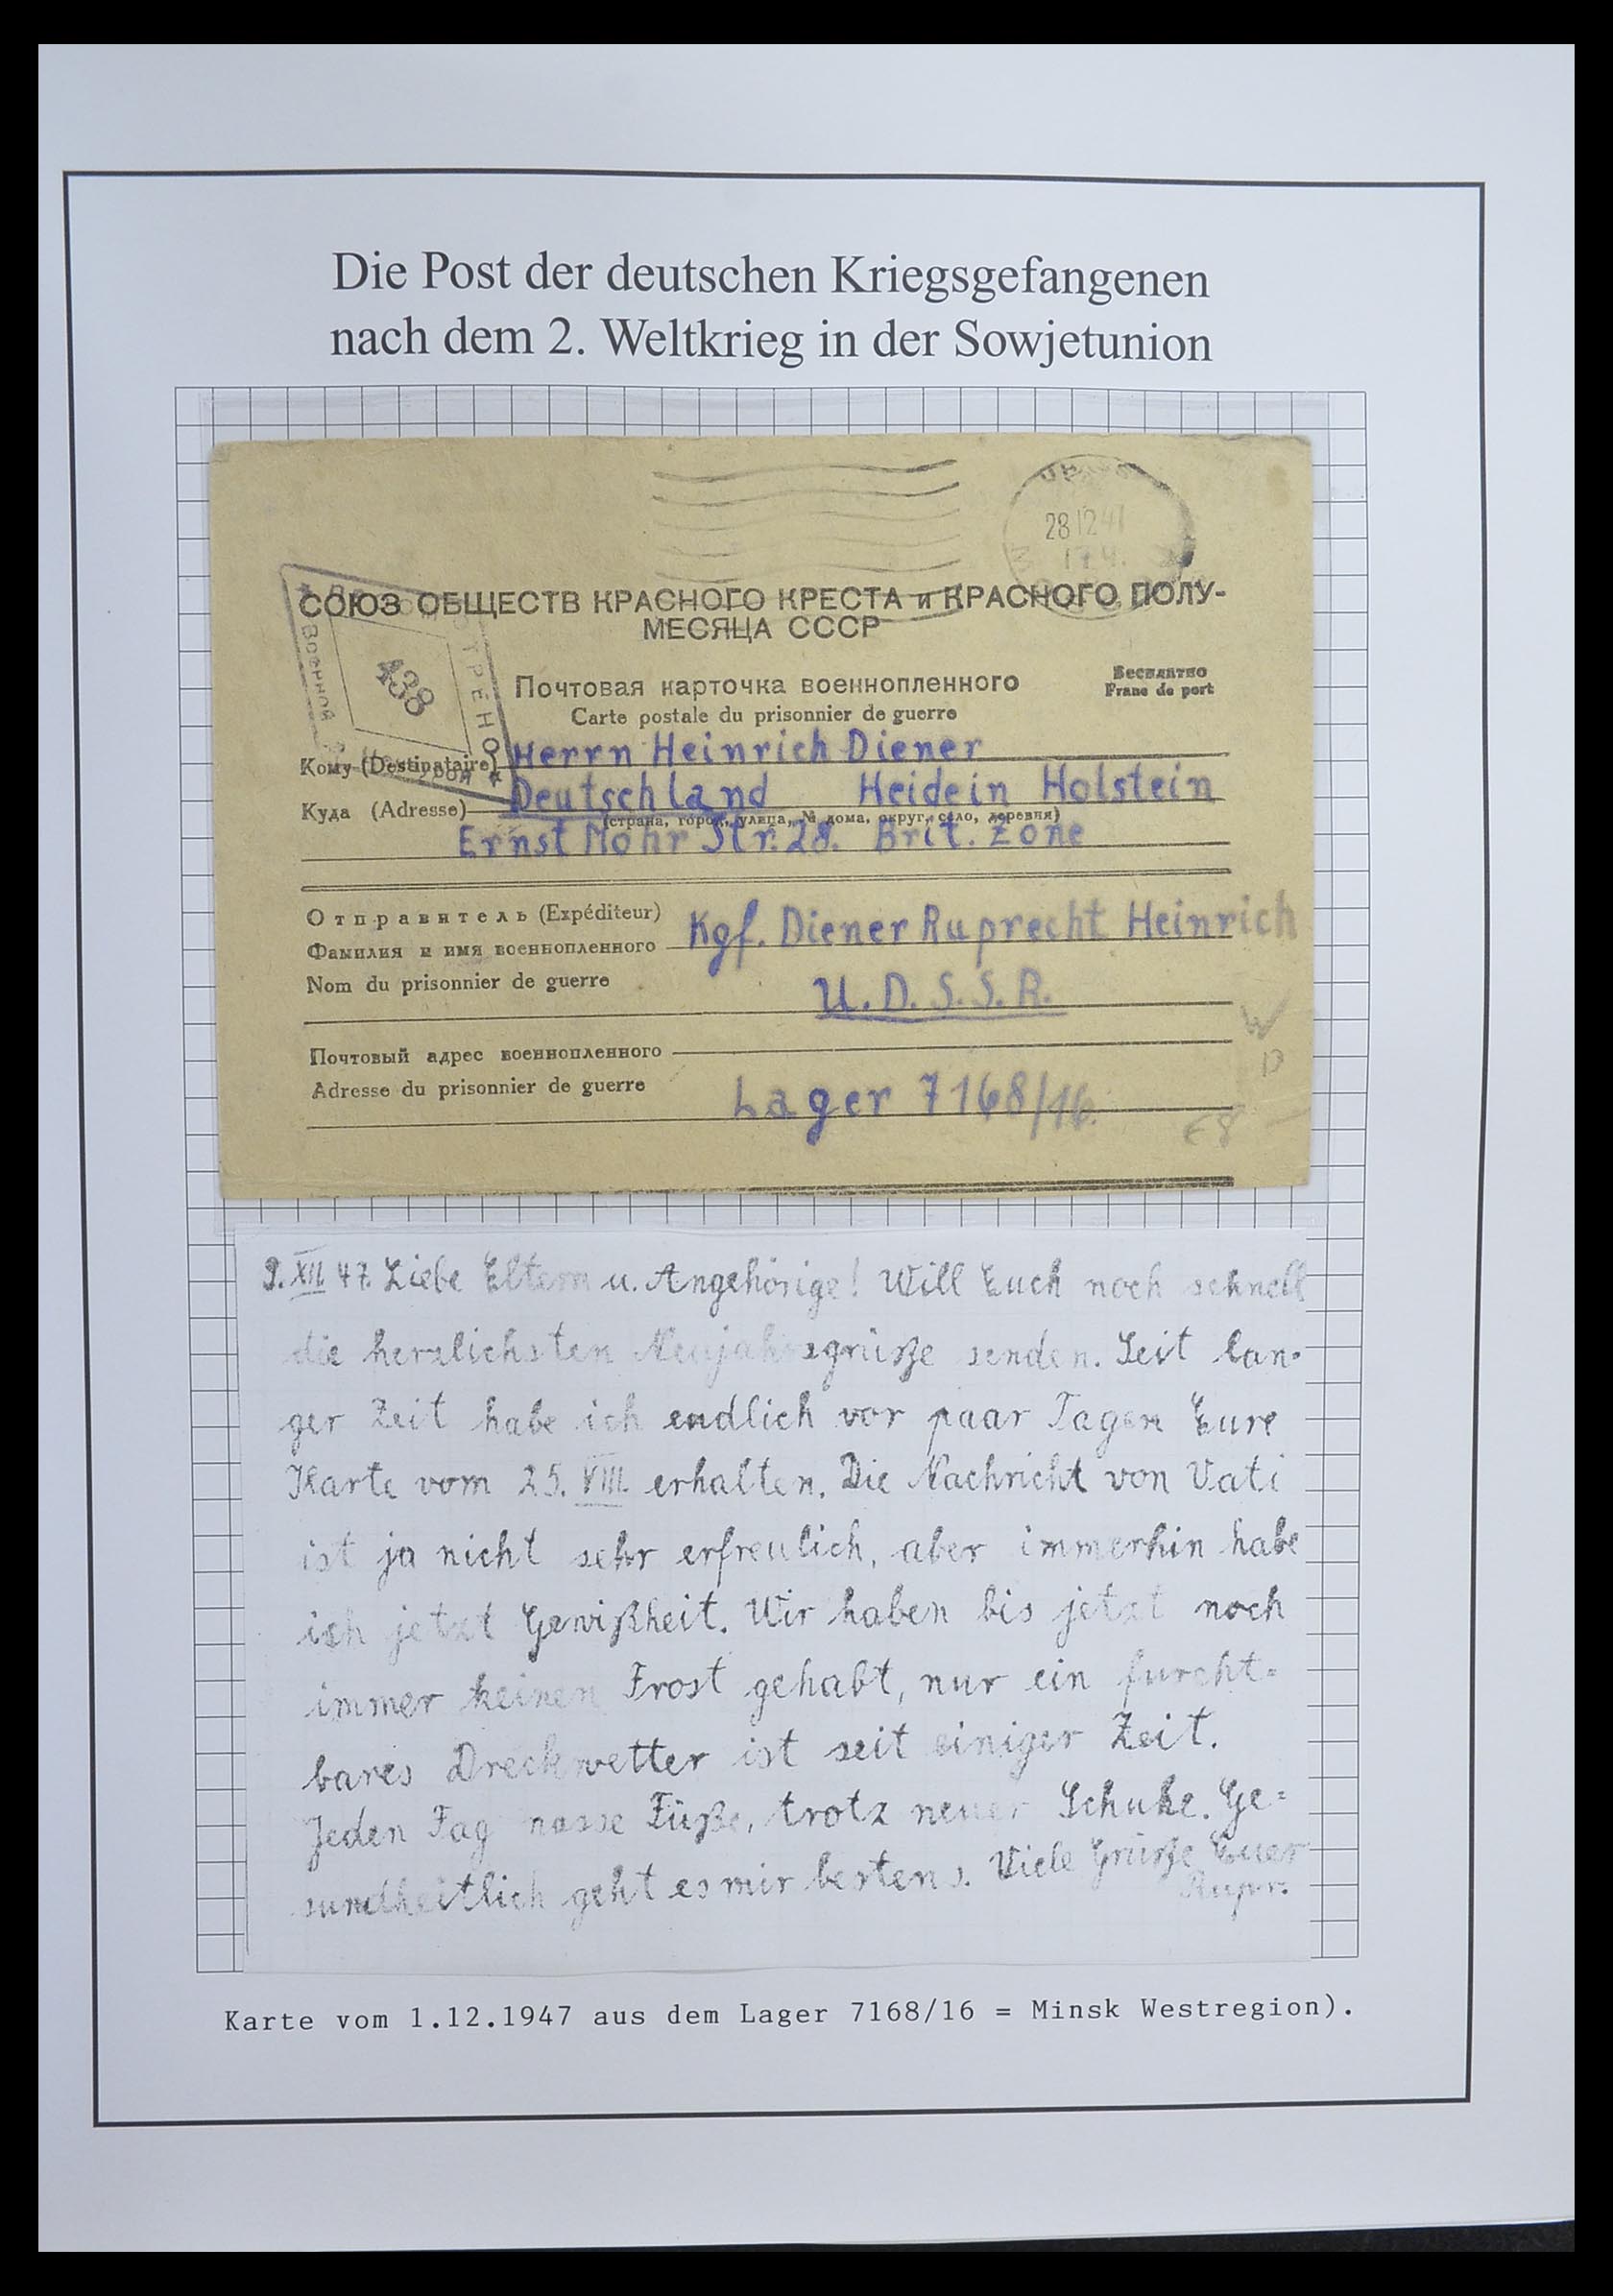 Die Post der deutschen Kriegsgefangenen
nach dem 2. Weltkrieg in der Sowjetunion
28 12 47
СОЮЗ ОБЩЕСТВ КРАСНОГО КРЕСТА и КРАСНОГО ПОЛУ-
МЕСЯЦА СССР
Военной
Почтовая карточка военнопленного
Бесплатно
Carte postale du prisonnier de guerre
Franc de port
Кому (Destinataire) Herrn Heinrich Diener
Куда (Adresse) Deutschland Heide in Holstein
(страна, город, улица, № дома, округ, село, деревня)
Ernst Mohr Str. 28. Brit. Zone
Отправитель (Expéditeur)
Фамилия и имя военнопленного Kgf. Diener Ruprecht Heinrich
Nom du prisonnier de guerre
U.D.S.S.R.
Почтовый адрес военнопленного
Adresse du prisonnier de guerre
Lager 7168/16.
XII. 47. Liebe Eltern u. Angehörige! Will Euch noch schnell
die herzlichsten Neujahrsgrüße senden. Seit lan-
ger Zeit habe ich endlich vor paar Tagen Eure
Karte vom 25. VIII. erhalten. Die Nachricht von Vati
ist ja nicht sehr erfreulich, aber immerhin habe
ich jetzt Gewißheit. Wir haben bis jetzt noch
immer keinen Frost gehabt, nur ein furcht-
bares Dreckwetter ist seit einiger Zeit.
Jeden Tag nasse Füße, trotz neuer Schuhe. Ge-
sundheitlich geht es mir bestens. Viele Grüße Euer
Rupr.
Karte vom 1.12.1947 aus dem Lager 7168/16 = Minsk Westregion).